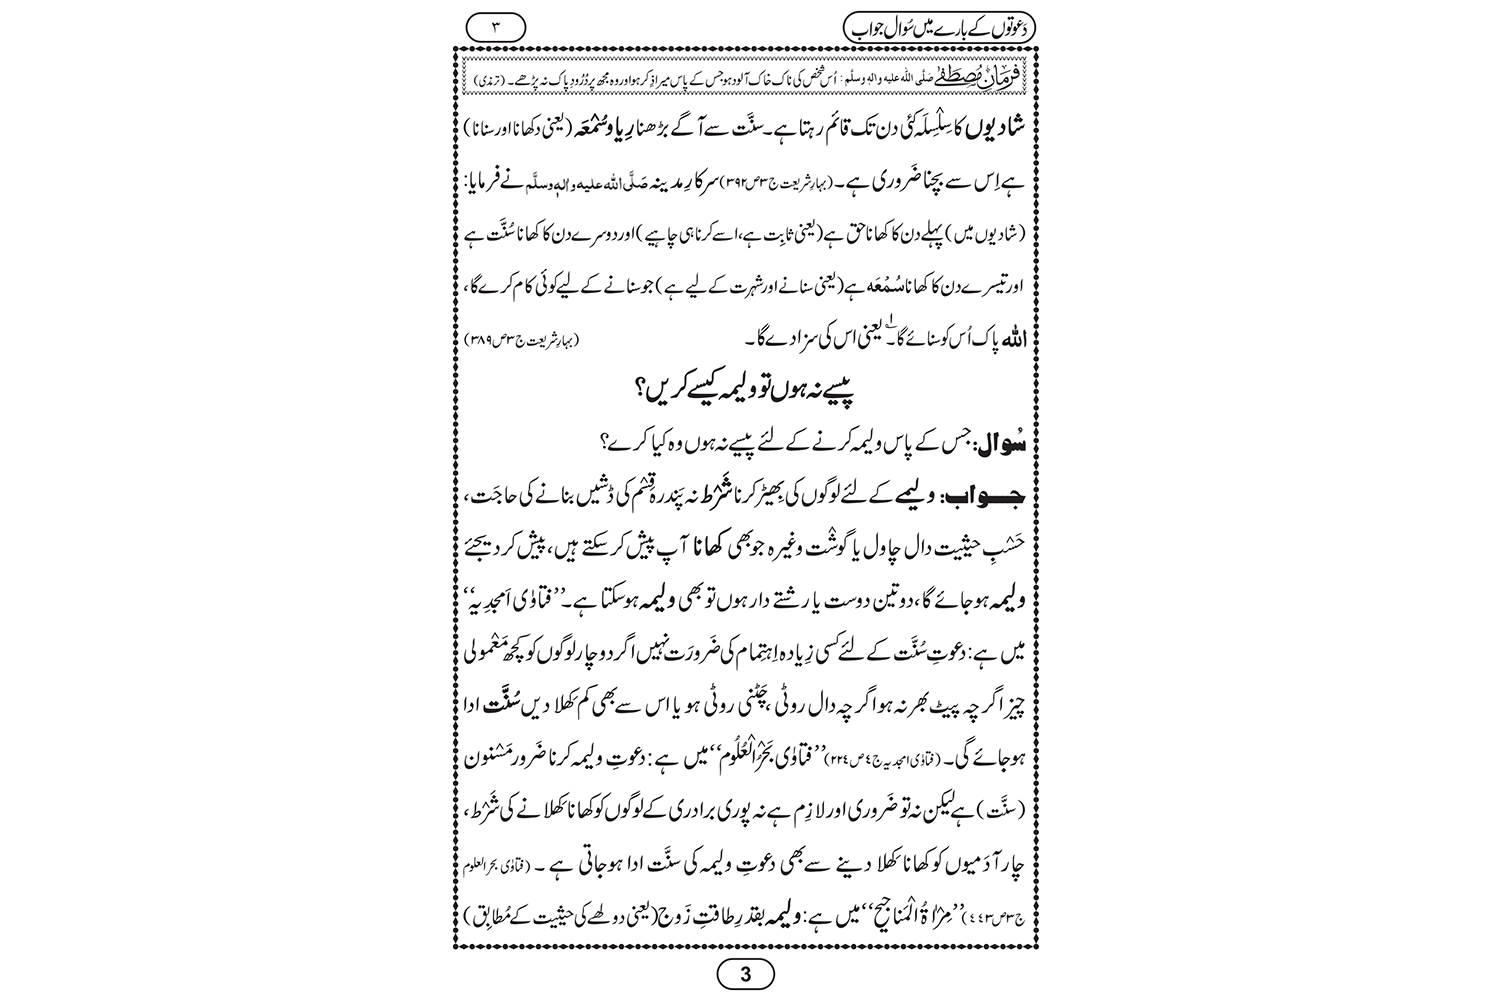 دَعوتوں کے بارے میں سُوال جواب
۳
فرمانِ مُصطَفٰے صَلَّی اللہ علیہ والہٖ وسلَّم : اُس شخص کی ناک خاک آلود ہو جس کے پاس میرا ذِکر ہو اور وہ مجھ پر دُرُودِ پاک نہ پڑھے۔ (ترمذی)
شادیوں کا سِلْسِلَہ کئی دن تک قائم رہتا ہے۔ سنَّت سے آگے بڑھنا رِیا و سُمْعَہ (یعنی دکھانا اور سنانا)
ہے اِس سے بچنا ضَروری ہے۔ (بہارِ شریعت ج۳ص۳۹۲) سرکارِ مدینہ صَلَّی اللہ علیہ والہٖ وسلَّم نے فرمایا:
(شادیوں میں) پہلے دن کا کھانا حق ہے (یعنی ثابِت ہے، اسے کرنا ہی چاہیے) اور دوسرے دن کا کھانا سُنَّت ہے
اور تیسرے دن کا کھانا سُمْعَہ ہے (یعنی سنانے اور شہرت کے لیے ہے) جو سنانے کے لیے کوئی کام کرے گا،
اللہ پاک اُس کو سنائے گا۔ ۱؎ یعنی اس کی سزا دے گا۔ (بہارِ شریعت ج۳ص۳۸۹)
پیسے نہ ہوں تو ولیمہ کیسے کریں؟
سُوال: جس کے پاس ولیمہ کرنے کے لئے پیسے نہ ہوں وہ کیا کرے؟
جواب: ولیمے کے لئے لوگوں کی بِھیڑ کرنا شَرْط نہ پَندرہ قِسْم کی ڈشیں بنانے کی حاجَت،
حَسْبِ حیثیت دال چاول یا گوشْت وغیرہ جو بھی کھانا آپ پیش کر سکتے ہیں، پیش کر دیجئے
ولیمہ ہو جائے گا، دو تین دوست یا رِشتے دار ہوں تو بھی ولیمہ ہو سکتا ہے۔ ’’فتاوٰی اَمجدِیہ‘‘
میں ہے: دعوتِ سُنَّت کے لئے کسی زِیادہ اِہتِمام کی ضَرورَت نہیں اگر دو چار لوگوں کو کچھ مَعْمولی
چیز اگرچہ پیٹ بھر نہ ہو اگرچہ دال روٹی ، چَٹنی روٹی ہو یا اس سے بھی کم کِھلا دیں سُنَّت ادا
ہو جائے گی۔ (فتاوٰی امجدیہ ج٤ص۲۲٤) ’’فتاوٰی بَحْرُ الْعُلُوم‘‘ میں ہے: دعوتِ ولیمہ کرنا ضَرور مَسْنون
(سنَّت) ہے لیکن نہ تو ضَروری اور لازِم ہے نہ پوری برادری کے لوگوں کو کھانا کھلانے کی شَرْط،
چار آدَمیوں کو کھانا کِھلا دینے سے بھی دعوتِ ولیمہ کی سنَّت ادا ہو جاتی ہے ۔ (فتاوٰی بحر العلوم
ج۳ص٤٤۳) ’’مِرْاٰۃُ الْمَناجِیح‘‘ میں ہے: ولیمہ بقَدرِ طاقتِ زَوج (یعنی دولھے کی حیثیت کے مُطابِق)
3